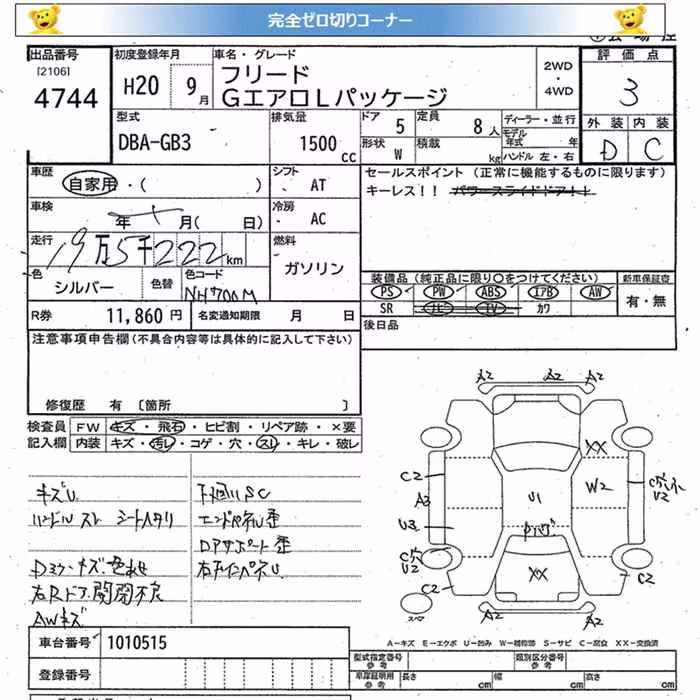 完全ゼロ切りコーナー
出品番号
[2106]
4744
初度登録年月
H20 9月
車名・グレード
フリード
GエアロLパッケージ
2WD
・
4WD
評価点
3
外装 内装
D C
型式
DBA-GB3
排気量
1500 cc
ドア 5
形状 W
定員 8人
積載 kg
ディーラー・並行
モデル年式 年
ハンドル 左・右
車歴
自家用・( )
シフト
AT
車検
年 月( 日)
冷房
AC
走行
19万5千222km
燃料
ガソリン
色
シルバー
色替
色コード
NH700M
セールスポイント (正常に機能するものに限ります)
キーレス!! パワースライドドア!!
装備品 (純正品に限り○をつけてください)
新車保証書
PS PW ABS エアB AW
SR ナビ TV カワ
有・無
R券 11,860円
名変通知期限 月 日
後日品
注意事項申告欄(不具合内容等は具体的に記入して下さい)
修復歴 有 〔箇所 〕
検査員記入欄
FW キズ・飛石・ヒビ割・リペア跡・×要
内装 キズ・汚レ・コゲ・穴・スレ・キレ・破レ
キズU
ハンドルスレ シートヘタリ
下回りSC
エンドパネル歪
Dアサポート歪
Dミラーキズ、色あせ
右Rドア開閉不良
AWキズ
A2 A2 A2
XX
C2
A3
U3
U2
C2
U1
W2
U2
XX
C2
スペア
A2 A2
A-キズ E-エクボ U-凹み W-補修跡 S-サビ C-腐食 XX-交換済
車台番号 1010515
登録番号
型式指定番号 参考
類別区分番号 参考
車庫証明用 参考
長さ cm 幅 cm 高さ cm